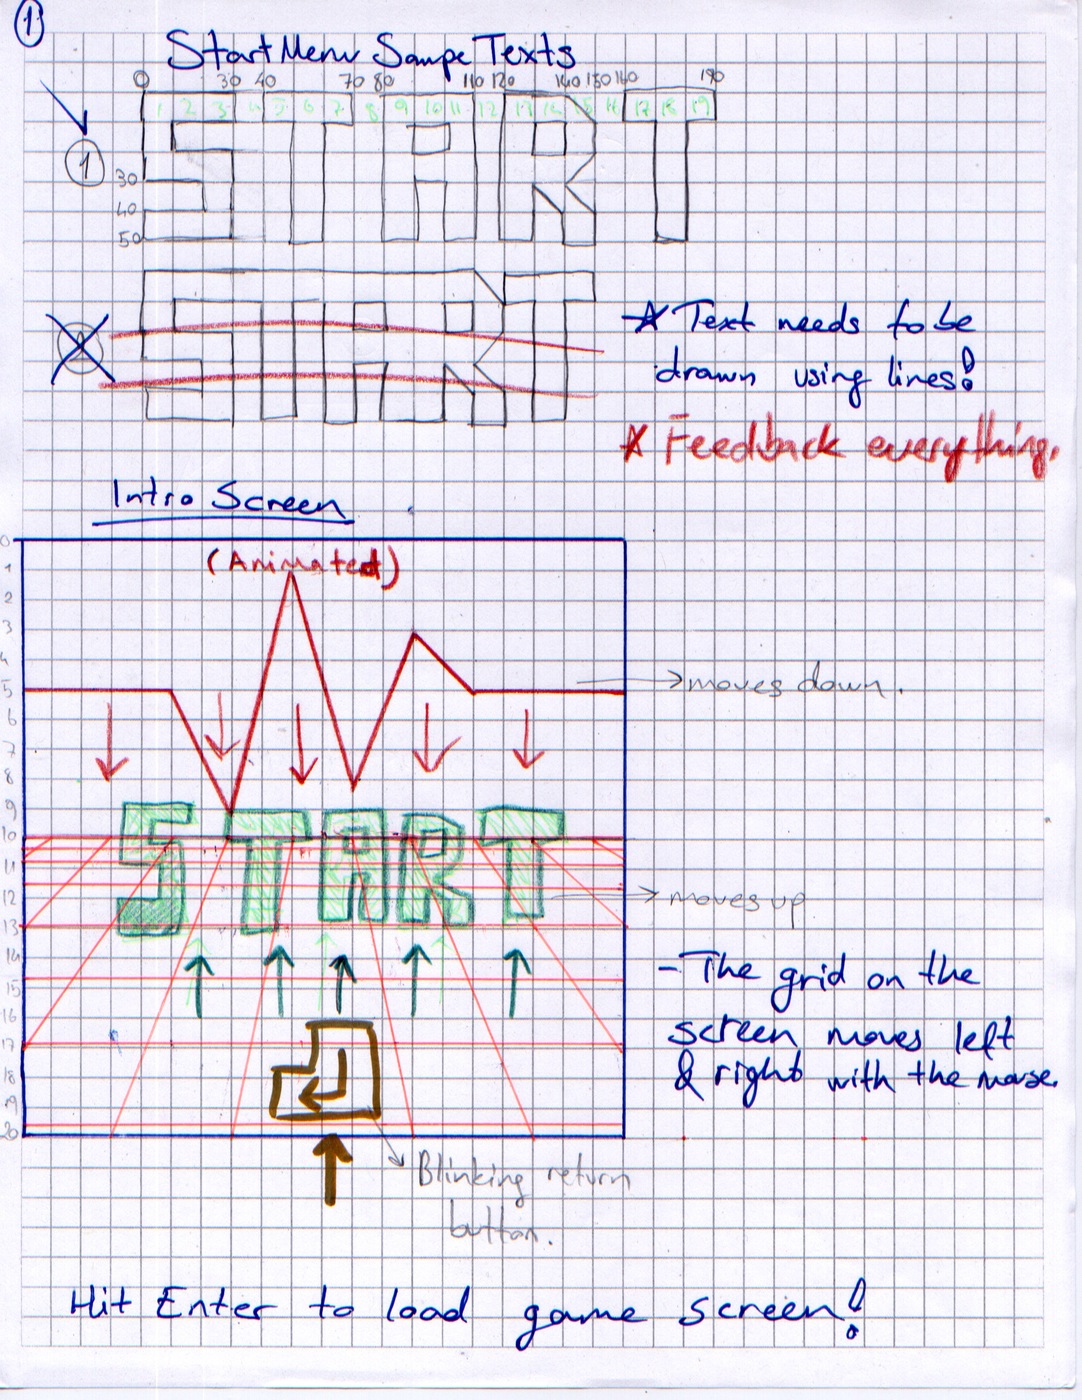 1
Start Menu Sampe Texts
0 30 40 70 80 110 120 140 150 160 190
1 2 3 4 5 6 7 8 9 10 11 12 13 14 15 16 17 18 19
START
1
30
40
50
START
2
* Text needs to be
drawn using lines!
* Feedback everything.
Intro Screen
(Animated)
0
1
2
3
4
5
6
7
8
9
10
11
12
13
14
15
16
17
18
19
20
→moves down.
START
→moves up
- The grid on the
screen moves left
& right with the mouse.
Blinking return
button.
Hit Enter to load game screen!